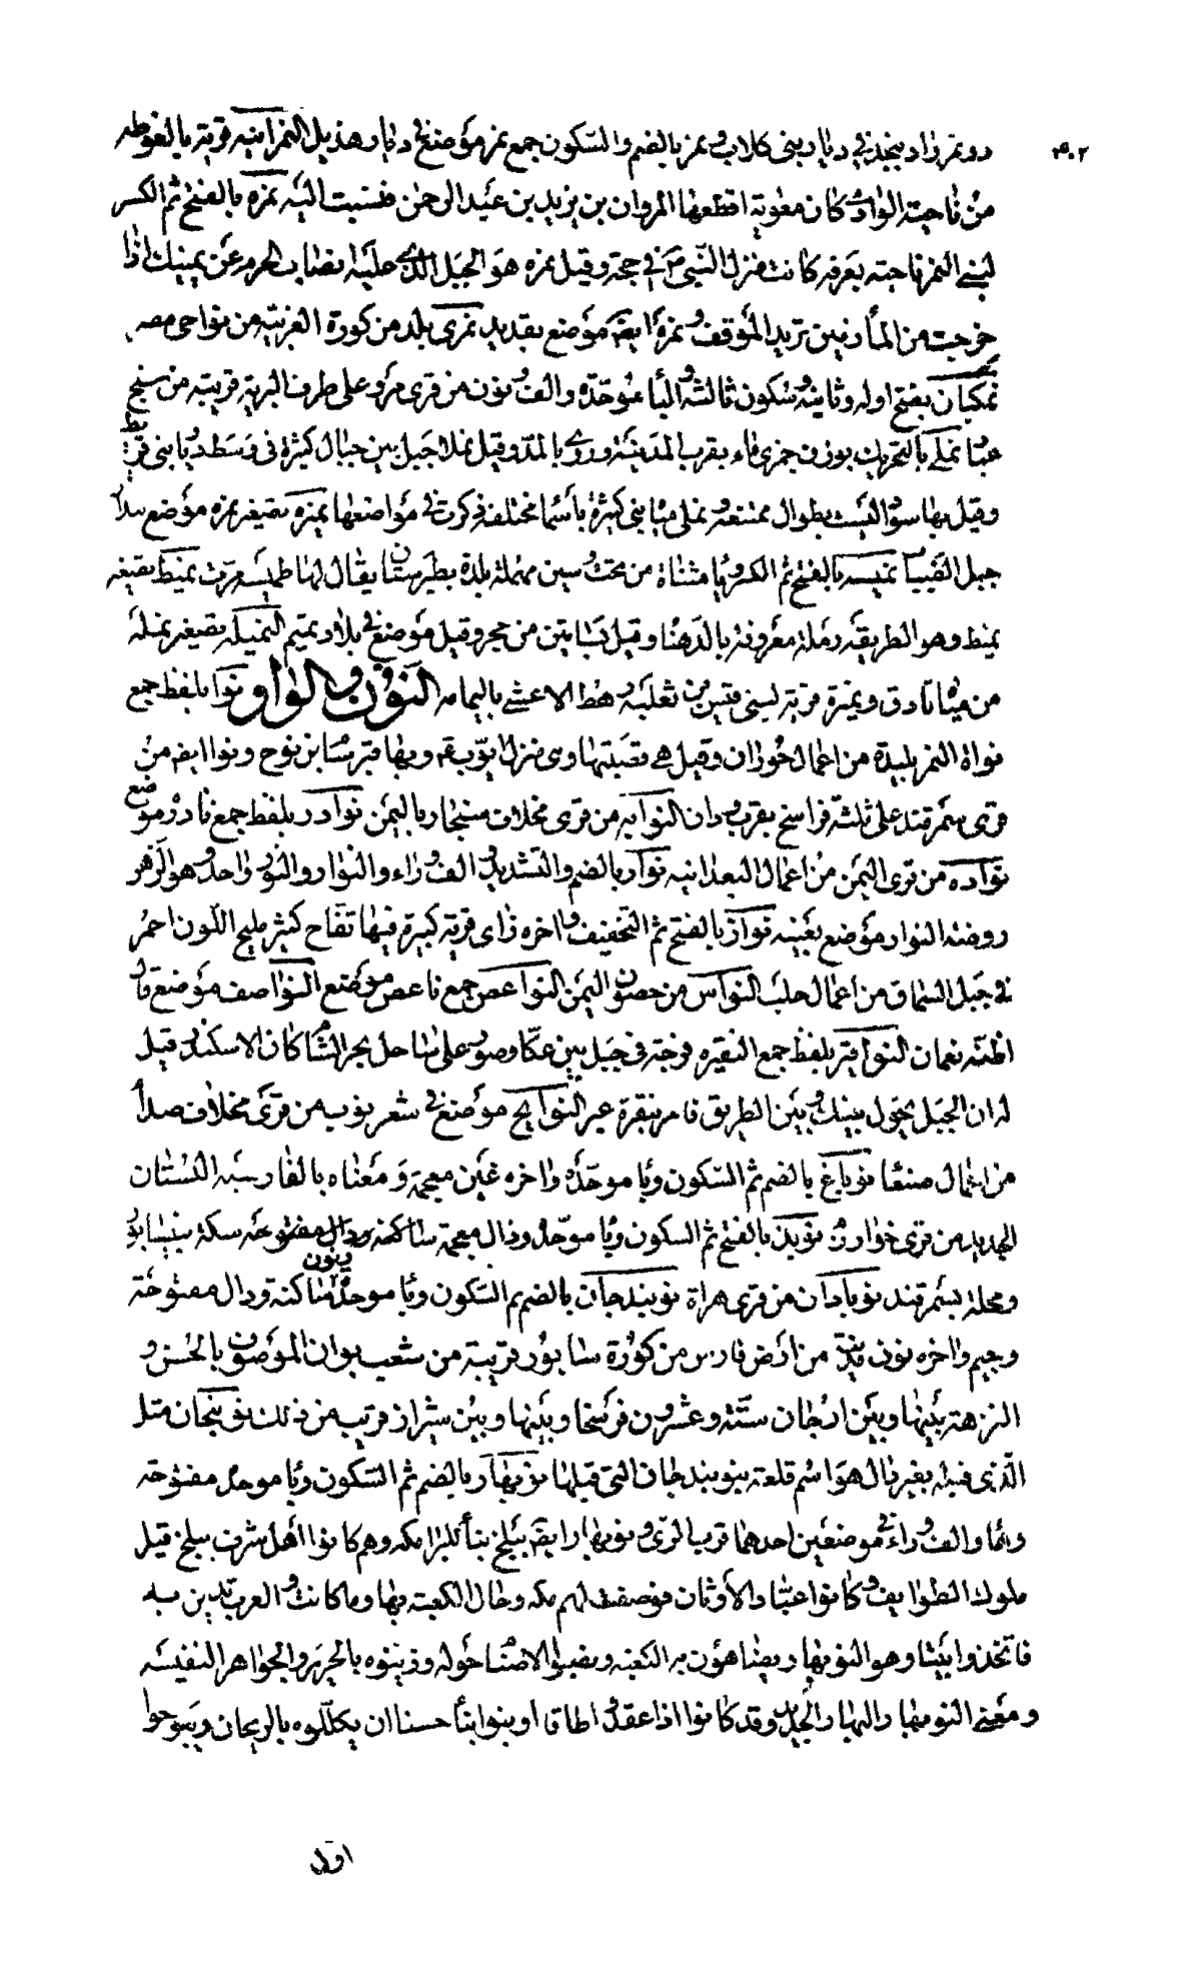 ٣٠٢
ذو نمر واد بنجد في ديار بني كلاب و نمر بالضم والسكون جمع نمر موضع في ديار هذيل النمرانية قرية بالغوطه
من ناحية الوادي كان معوية اقطعها لمروان بن يزيد بن عبد الرحمن فنسبت اليه نمره بالفتح ثم الكسر
ناحيته بعرفه كانت منزل النبي في حجة وقيل نمره هو الجبل الذي عليه انصاب الحرم عن يمينك اذا
خرجت من المأزمين تريد الموقف و نمرة ايضا موضع بقديد نمرى بلد من كورة الغربيه من نواحى مصر
نمكبان بفتح اوله وثانيه وسكون ثالثه و البا موحدة والف ونون من قرى مرو على طرف البرية قريبه من سنج
عباد نملى بالتحريك بوزن جمزى ماء بقرب المدينة وروى بالمد وقيل نملا جبل بين جبال كثيرة فى وسط ديار بنى قريط
وقيل بها سوى ليست بطوال ممتنعه و نملى مياه بنى كثيرة بأسما مختلفه ذكرت في مواضعها نميره تصغير نمره موضع
جبل الضبيب نميسه بالفتح ثم الكسر و يا مثناة من تحت وسين مهملة بلدة بطبرستان يقال لها طميسه عربت نميط تصغير
نمط وهو الطريقه رملة معروفة بالدهنا وقيل بساتين من حجر وقيل موضع في بلاد تميم النميله تصغير نملة
من مياه تادق و نميرة قرية لبنى قيس بن ثعلبه رهط الاعشى باليمامه النون والواو نوا بلفظ جمع
نواة التمر بليدة من اعمال حوران وقيل هى قصبتها وهى منزل ايوب وبها قبر سام بن نوح ونوا ايضا من
قرى سمرقند على ثلثة فراسخ بقرب ودان النوابه من قرى مخلاف سنحان باليمن نوادر بلفظ جمع نادر موضع
نواده من قرى اليمن من اعمال البعدانيه نوار بالضم والتشديد و الف و راء والنوار والنور واحد وهو الزهر
روضة النوار موضع بعينه نواز بالفتح ثم التخفيف و اخره زاى قرية كبيرة فيها تفاح كثير مليح اللون احمر
في جبل السماق من اعمال حلب النواس من حصون اليمن النواعص جمع ناعص موضع النواصف موضع
اظنه نعمان النواقير بلفظ جمع النقير فرجة فى جبل بين عكا وصور على ساحل بحر الشام كان الاسكندر قيل
له ان الجبل يحول بينك و بين الطريق فامر بنقره عبر النوايح موضع في شعر نوب من قرى مخلاف صدأ
من اعمال صنعا نوباغ بالضم ثم السكون وبا موحدة واخره غين معجمة و معناه بالفارسيه البستان
الجديد من قرى خوارزم نوبذ بالفتح ثم السكون وبا موحدة وذال معجمة سكة بنيسابور
ومحلة بسمرقند نوبادان من قرى هراة نوبندجان بالضم ثم السكون وبا موحدة ونون ساكنة ودال مفتوحة
وجيم واخره نون مدينة من ارض فارس من كورة سابور قريبة من شعب بوان الموصوف بالحسن و
النزهة بينها وبين ارجان ستة وعشرون فرسخا وبينها وبين شيراز قريب من ذلك نوبنجان مثل
الذى قبله بغير دال هو اسم قلعة بنوبندجان التى قبلها نوبهار بالضم ثم السكون وبا موحدة مفتوحة
وها والف و راء في موضعين احدهما قرب الرى و نوبهار ايضا ببلخ بناء للبرامكه وهم كانوا اهل شرف ببلخ قبل
ملوك الطوايف وكانوا عباد الأوثان فوصفت لهم مكه وحال الكعبة بها وما كانت العرب تدين به
فاتخذوا بيتا وهو النوبهار يضاهون به الكعبه ونصبوا الاصنام حوله وزينوه بالحرير والجواهر النفيسه
ومعنى النوبهار البهار الجديد وقد كانوا اذا عقدوا طاقا او بنوا بناء حسنا ان يكللوه بالريحان ويتوخوا
اول